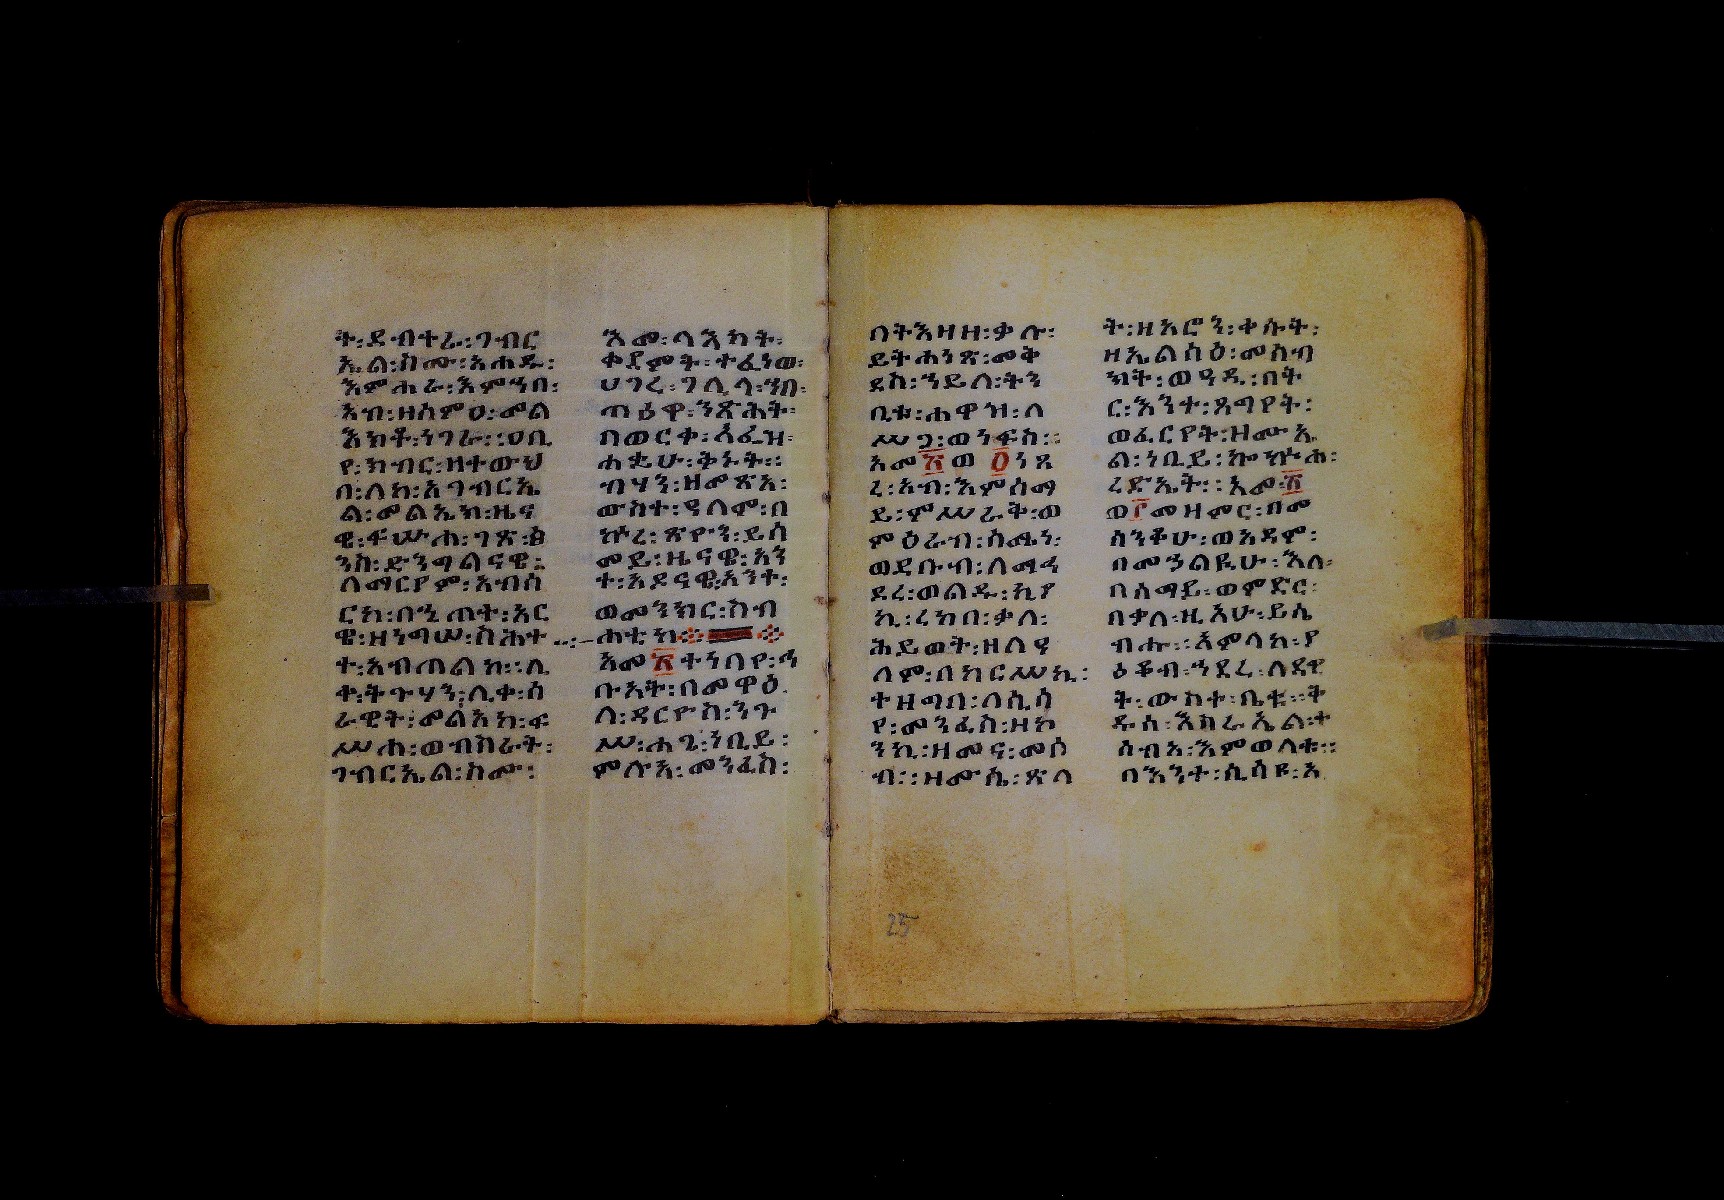 ት፡ደብተራ፡ገብር
ኤል፡ስሙ፡አሐዱ፡
እምሐራ፡እምኀበ፡
አብ፡ዘሰምዐ፡መል
እክቶ፡ነገራ፡፡ዐቢ
የ፡ክብር፡ዘተውህ
በ፡ለከ፡አገብርኤ
ል፡መልኤክ፡ዜና
ዊ፡ፍሡሐ፡ገጽ፡ፅ
ንስ፡ድንግልናዊ፡
ለማርያም፡አብሰ
ርከ፡በኂጠት፡አር
ዌ፡ዘንግሠ፡ስሕተ
ት፡አብጠልከ፡፡ሊ
ቀ፡ትጉሃን፡ሊቀ፡ሰ
ራዊት፡መልአከ፡ፍ
ሥሐ፡ወብስራት፡
ገብርኤል፡ስሙ፡
እመ፡ላእክት፡
ቀደምት፡ተፈነወ፡
ሀገረ፡ገሊላ፡ኀበ፡
ጠዕዋ፡ንጽሕት፡
በወርቀ፡ሐፈዝ፡
ሐቌሁ፡ቅኑት፡፡
ብሃን፡ዘመጽአ፡
ውስተ፡ዳለም፡በ
ኵረ፡ጽዮን፡ይሰ
መይ፡ዜናዌ፡አን
ተ፡አዶናዊ፡አንተ፡
ወመንክር፡ስብ
ሐቲከ
አመ፳ተነበየ፡ኅ
ቡአት፡በመዋዕ
ለ፡ዳርዮስ፡ንጉ
ሠ፡ሐጊ፡ነቢይ፡
ምሉአ፡መንፈስ፡
በትእዛዘ፡ቃሉ፡
ይትሐነጽ፡መቅ
ደስ፡ኀይለ፡ትን
ቢቱ፡ሐዋዝ፡ለ
ሥጋ፡ወነፍስ፡፡
አመ፳ወ፩ነጸ
ረ፡አብ፡እምሰማ
ይ፡ምሥራቅ፡ወ
ምዕራብ፡ሰሜን፡
ወደቡብ፡ለማኅ
ደረ፡ወልዱ፡ኪያ
ኪ፡ረከበ፡ቃለ፡
ሕይወት፡ዘለዓ
ለም፡በከርሥኪ፡
ተዘግበ፡ለሲሳ
የ፡መንፈስ፡ዘኮ
ንኪ፡ዘመና፡መሶ
ብ፡፡ዘሙሴ፡ጽላ
ት፡ዘአሮን፡ቀሱት፡
ዘኢልሳዕ፡መሰብ
ክት፡ወዓዱ፡በት
ር፡እንተ፡ጸግየት፡
ወፈርየት፡ዘሙኤ
ል፡ነቢይ፡
ረድኤት፡፡አመ፡፳
ወ፫መዘምር፡በመ
ሰንቆሁ፡ወአዳም፡
በመኃልዪሁ፡እለ፡
በሰማይ፡ወምድር፡
በቃለ፡ዚአሁ፡ይሴ
ብሑ፡፡አምላከ፡ያ
ዕቆብ፡ኀደረ፡ለዳዊ
ት፡ውስተ፡ቤቱ፡፡ት
ዱስ፡እስራኤል፡ተ
ሰብአ፡እምወለቱ፡፡
በእንተ፡ሲሳዩ፡አ